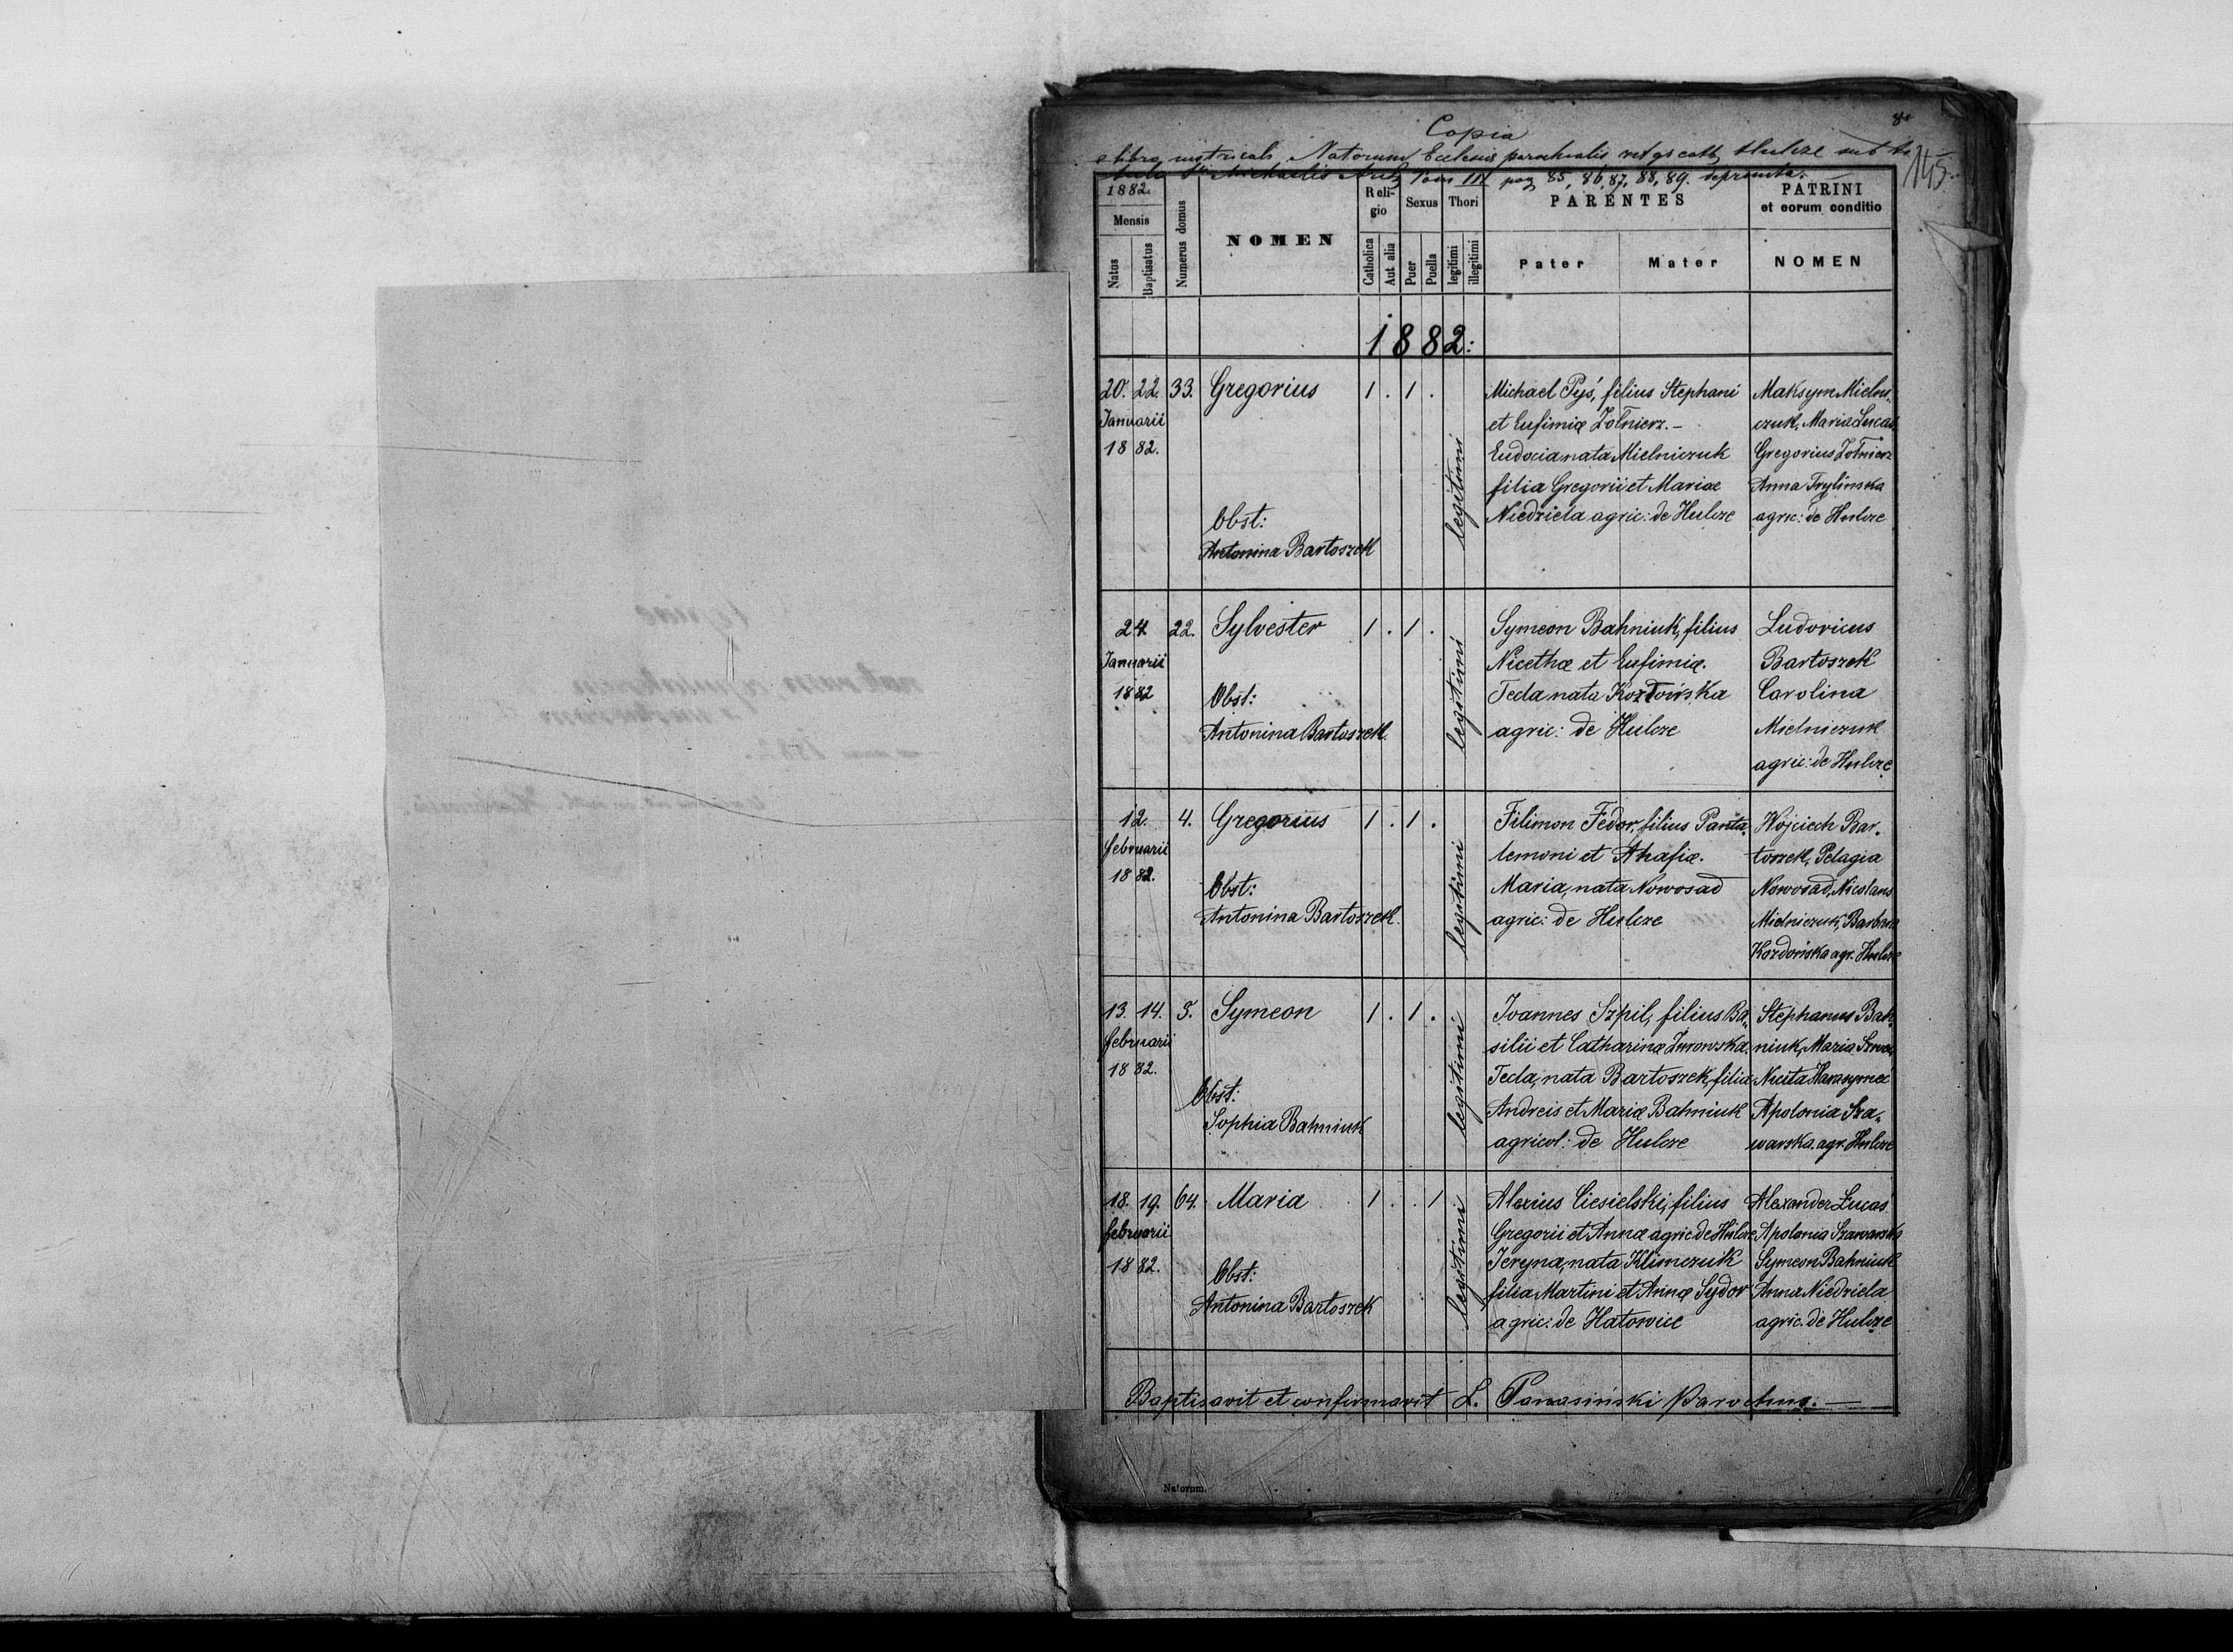 8
Copia
e libro metricali Natorum Ecclesiæ parochialis rit gr cath Hulcze sub ti-
tulo Sti Michaelis Arch Tom III pag 85, 86, 87, 88, 89. deprompta.
145
1882.
Mensis
Natus
Baptisatus
Numerus domus
NOMEN
Reli-
gio
Catholica
Aut alia
Sexus
Puer
Puella
Thori
legitimi
illegitimi
PARENTES
Pater
Mater
PATRINI
et eorum conditio
NOMEN
1882:
20. 22. 33. Gregorius 1 . 1 .
Januarii
1882.
Obst:
Antonina Bartoszek
legitimi
Michael Pyś, filius Stephani
et Eufimiæ Żołnierz. –
Eudocia nata Mielniczuk
filia Gregorii et Mariae
Niedziela agric: de Hulcze
Maksym Mielni-
czuk, Maria Lucas
Gregorius Żołnierz
Anna Trylinska
agric: de Hulcze
24. 22. Sylvester 1 . 1 .
Januarii
1882
Obst:
Antonina Bartoszek
legitimi
Symeon Bahniuk, filius
Nicethæ et Eufimiæ.
Tecla nata
agric: de Hulcze
Ludovicus
Bartoszek
Carolina
Mielniczuk
agric: de Hulcze
12. 4. Gregorius 1 . 1 .
februarii
1882.
Obst:
Antonina Bartoszek.
legitimi
Filimon Fedor, filius Panta-
lemoni et Ahafiæ.
Maria, nata Nowosad
agric: de Hulcze
Wojciech Bar-
toszek, Pelagia
Nowosad, Nicolaus
Mielniczuk, Barbara
agr. Hulcze
13. 14. 5. Symeon 1 . 1 .
februarii
1882.
Obst:
Sophia Bahniuk
legitimi
Joannes Szpil, filius Ba-
silii et Catharinæ Żurowska.
Tecla, nata Bartoszek, filia
Andreis et Mariæ Bahniuk
agricol: de Hulcze
Stephanus Bah-
niuk, Maria
Nicita Harasymec
Apolonia Sza-
warska. agr. Hulcze
18. 19. 64. Maria 1 . . 1
februarii
1882.
Obst:
Antonina Bartoszek
legitimi
Alexius Ciesielski, filius
Gregorii et Annæ agric de Hulcze
Jeryna, nata Klimczuk
filia Martini et Annæ Sydor
agric: de Hatowice
Alexander Łucas
Apolonia Szawarska
Symeon Bahniuk
Anna Niedziela
agric. de Hulcze
Baptisavit et confirmavit L. Tarnasiński Parochus. —
Natorum.